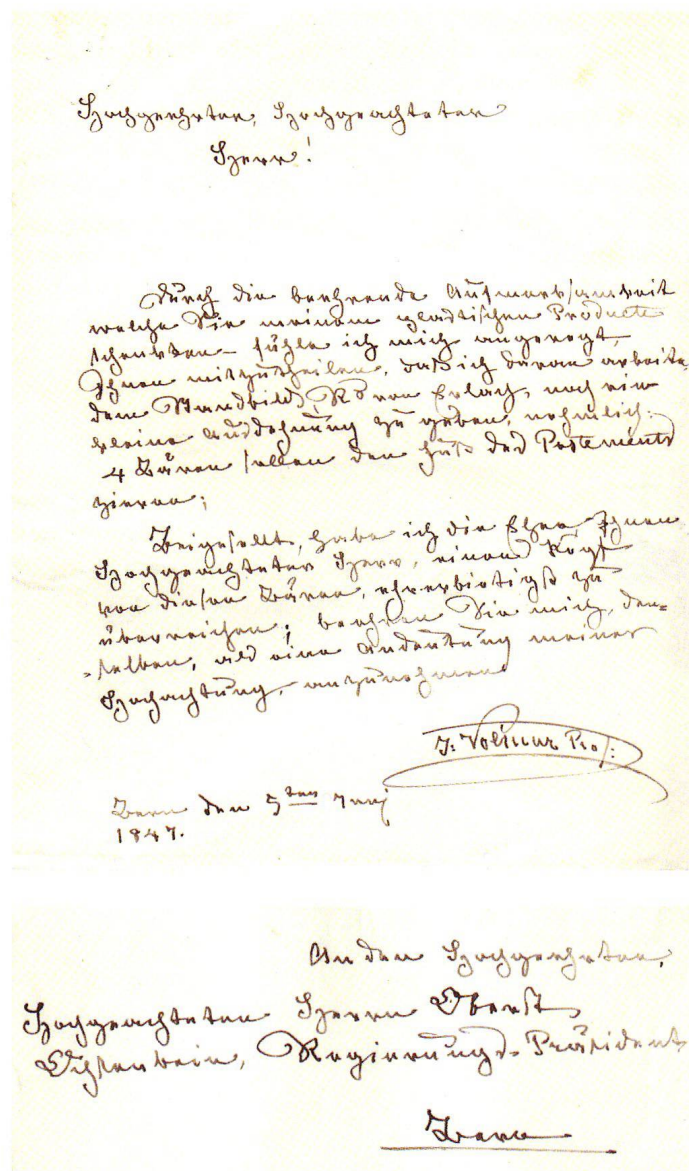 Hochgeehrter, Hochgeachteter
Herr!
Durch die beehrende Aufmerksamkeit
welche Sie meinem plastischen Producte
schenkten – fühle ich mich angeregt,
Ihnen mitzutheilen, daß ich daran arbeite
dem Standbild Rd von Erlach, noch eine
kleine Ausdehnung zu geben, nehmlich:
4 Bären sollen den Fuß des Postements
zieren;
Beigesellt, habe ich die Ehre, Ihnen
Hochgeachteter Herr, einen Kopf
von diesen Bären, ehrerbietigst zu
überreichen; beehren Sie mich, den=
=selben, als eine Andeutung meiner
Hochachtung, anzunehmen
J. Volmar Prof:
Bern den 5ten Juni
1847.
An den Hochgeehrten,
Hochgeachteten Herrn Oberst
Ochsenbein, Regierungs-Präsident
Bern